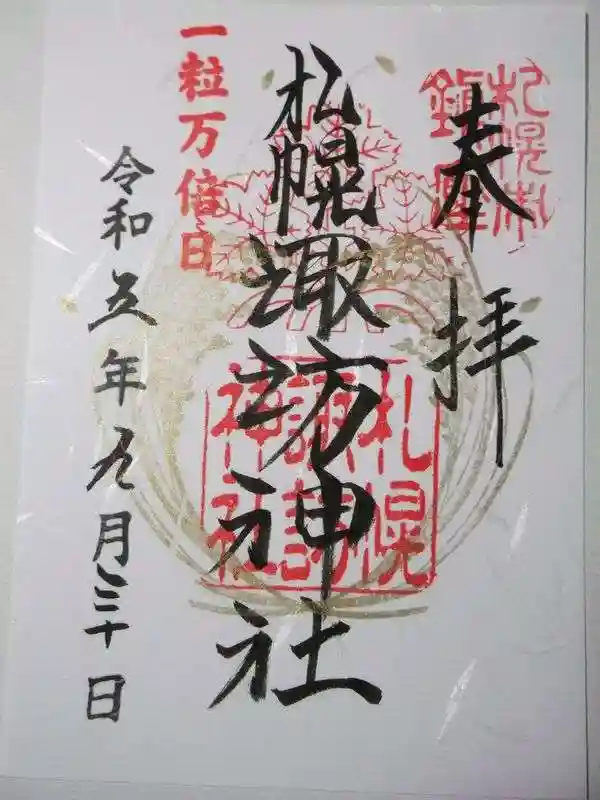 奉拝
札幌村
鎮座
札幌諏訪神社
札幌
諏訪
神社
一粒万倍日
令和五年九月三十日